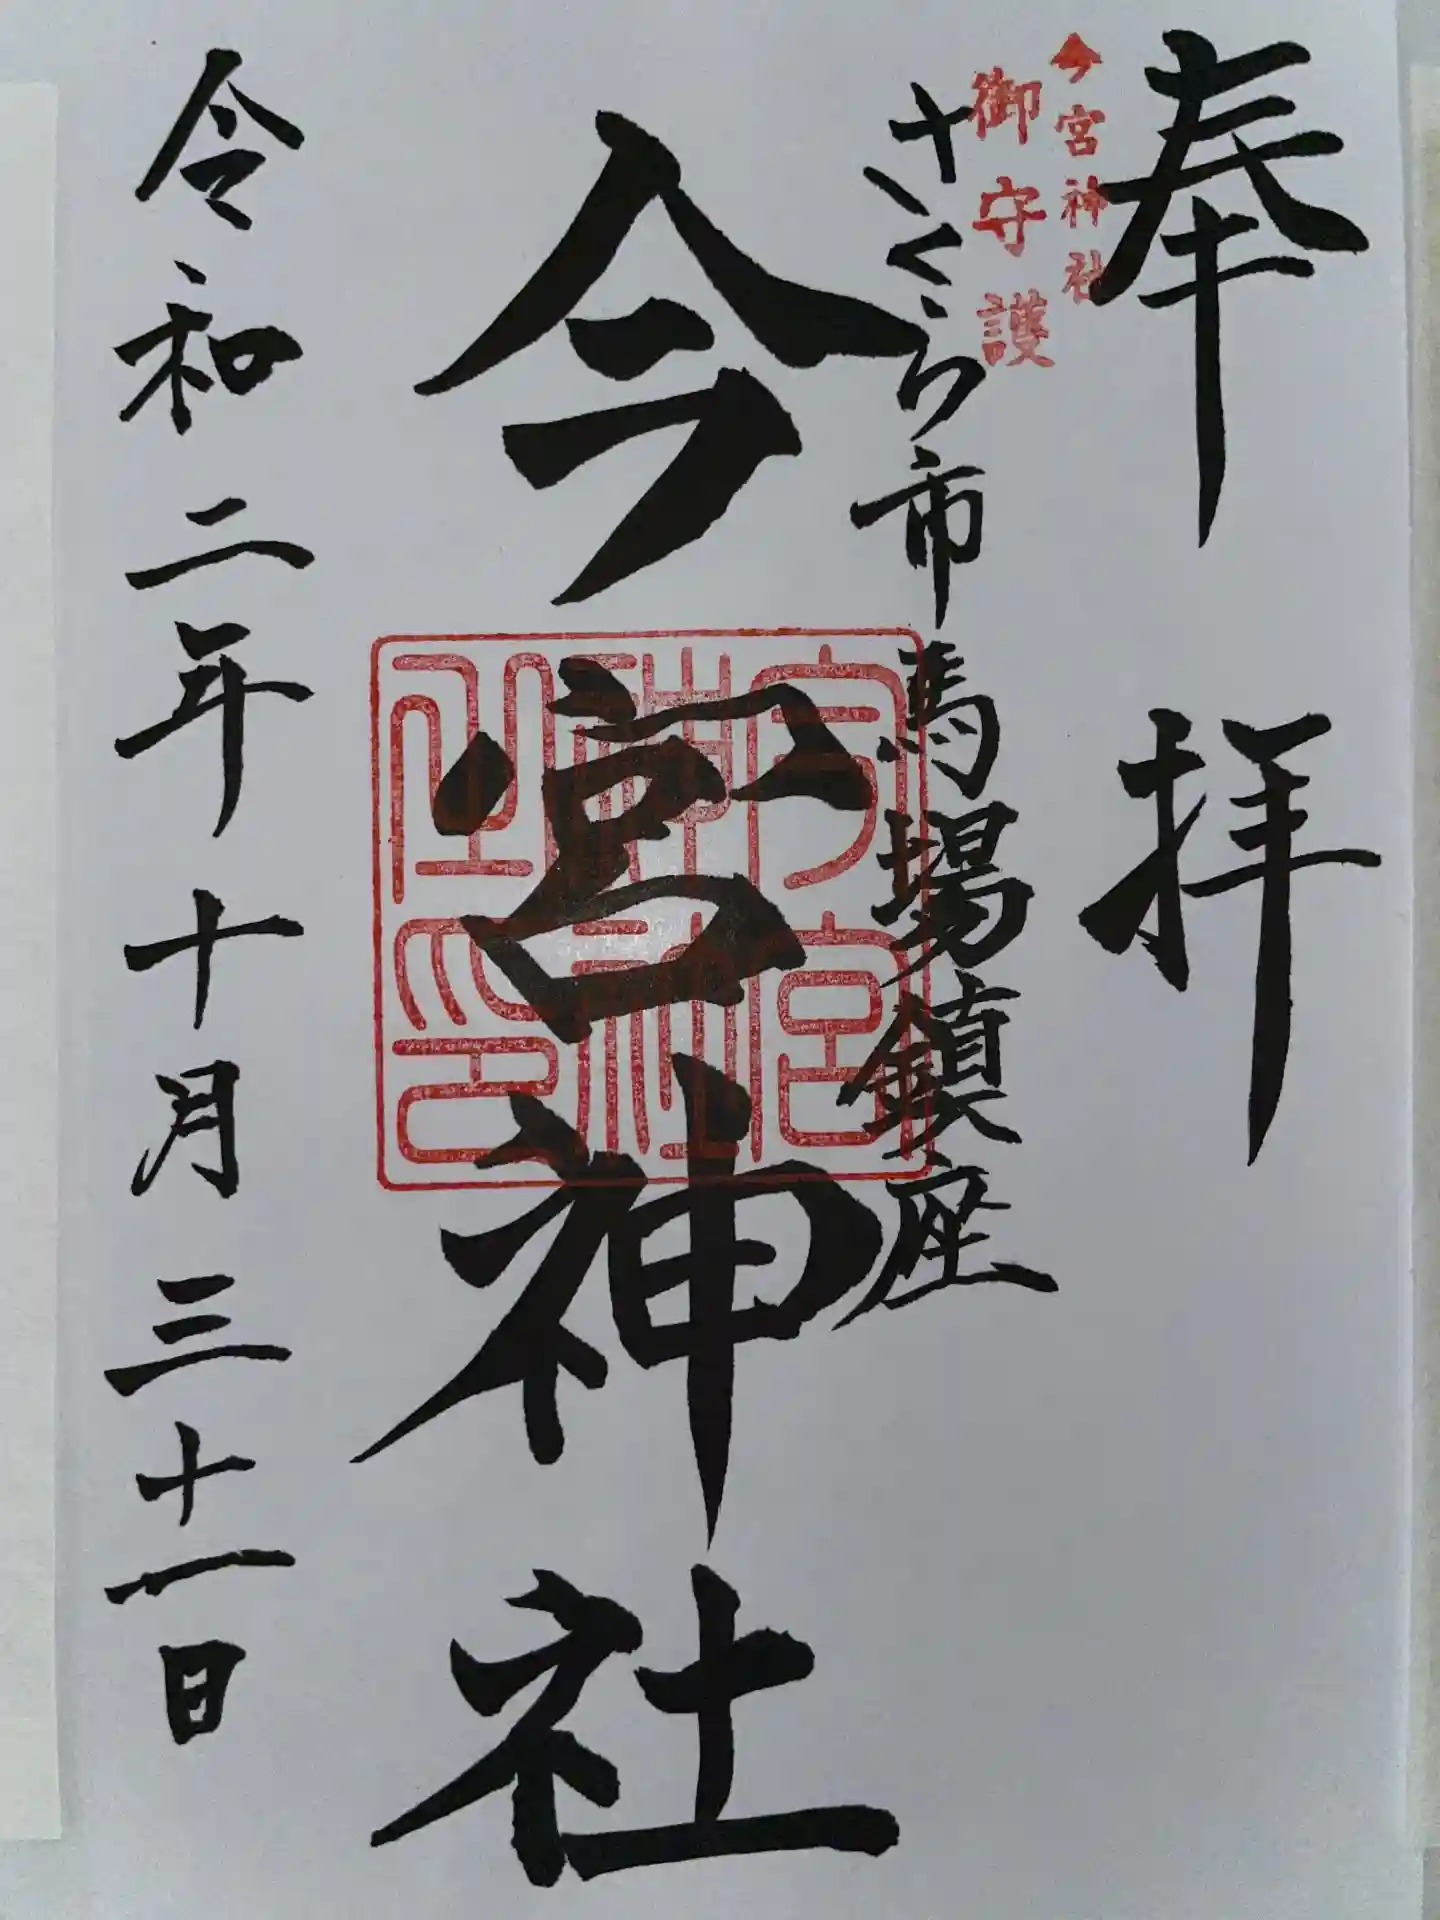 奉拝
今宮神社
御守護
さくら市馬場鎮座
今宮神社
今宮神社之印
令和二年十月三十一日